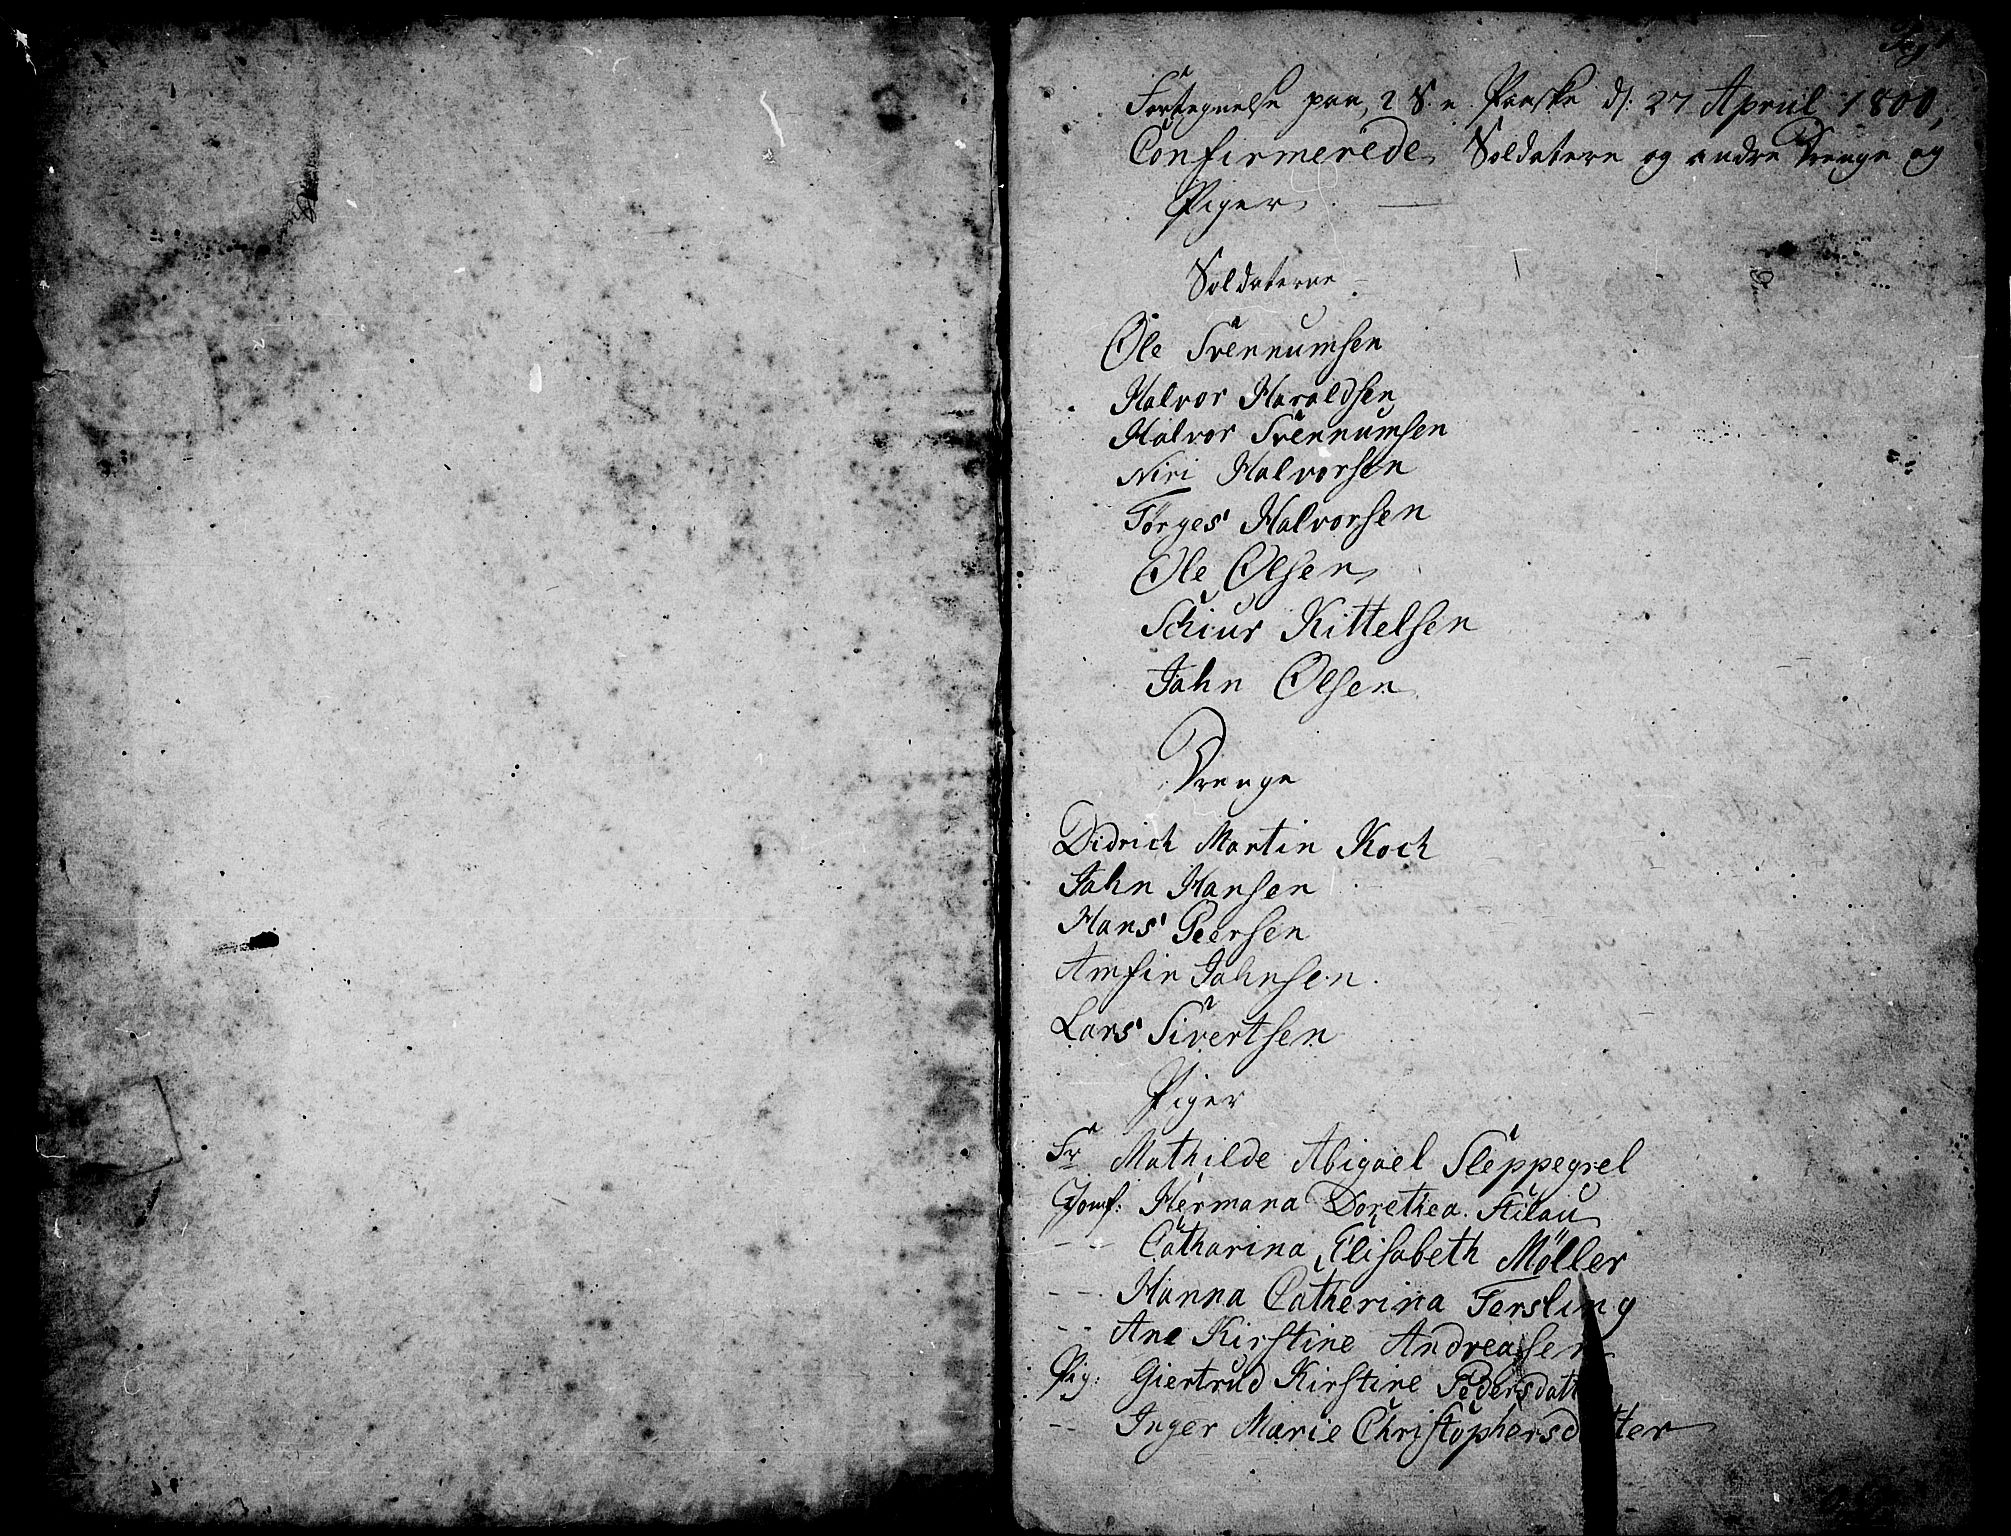 Pag 1
Fortegnelse paa, 2 S. e. Paaske d: 27 April 1800,
Confirmerede Soldatere og andre Drenge og
Piger
Soldaterne
Ole Svennumsen
Halvor Haraldsen
Halvor Svennumsen
Niri Halvorsen
Torges Halvorsen
Ole Olsen
Schiur Kittelsen
Jahn Olsen
Drenge
Didrich Martin Koch
Jahn Hansen
Hans Peersen
Arnfin Jahnsen.
Lars Sivertsen
Piger
Fr Mathilde Abigael Sleppegrel
Jomf: Hermana Dorethea
- - Catharina Elisabeth Møller
- - Hanna Catherina Fersling
- - Ane Kirstine Andreasen
Pig: Giertrud Kirstine Pedersdatt
- Inger Marie Christophersdatter